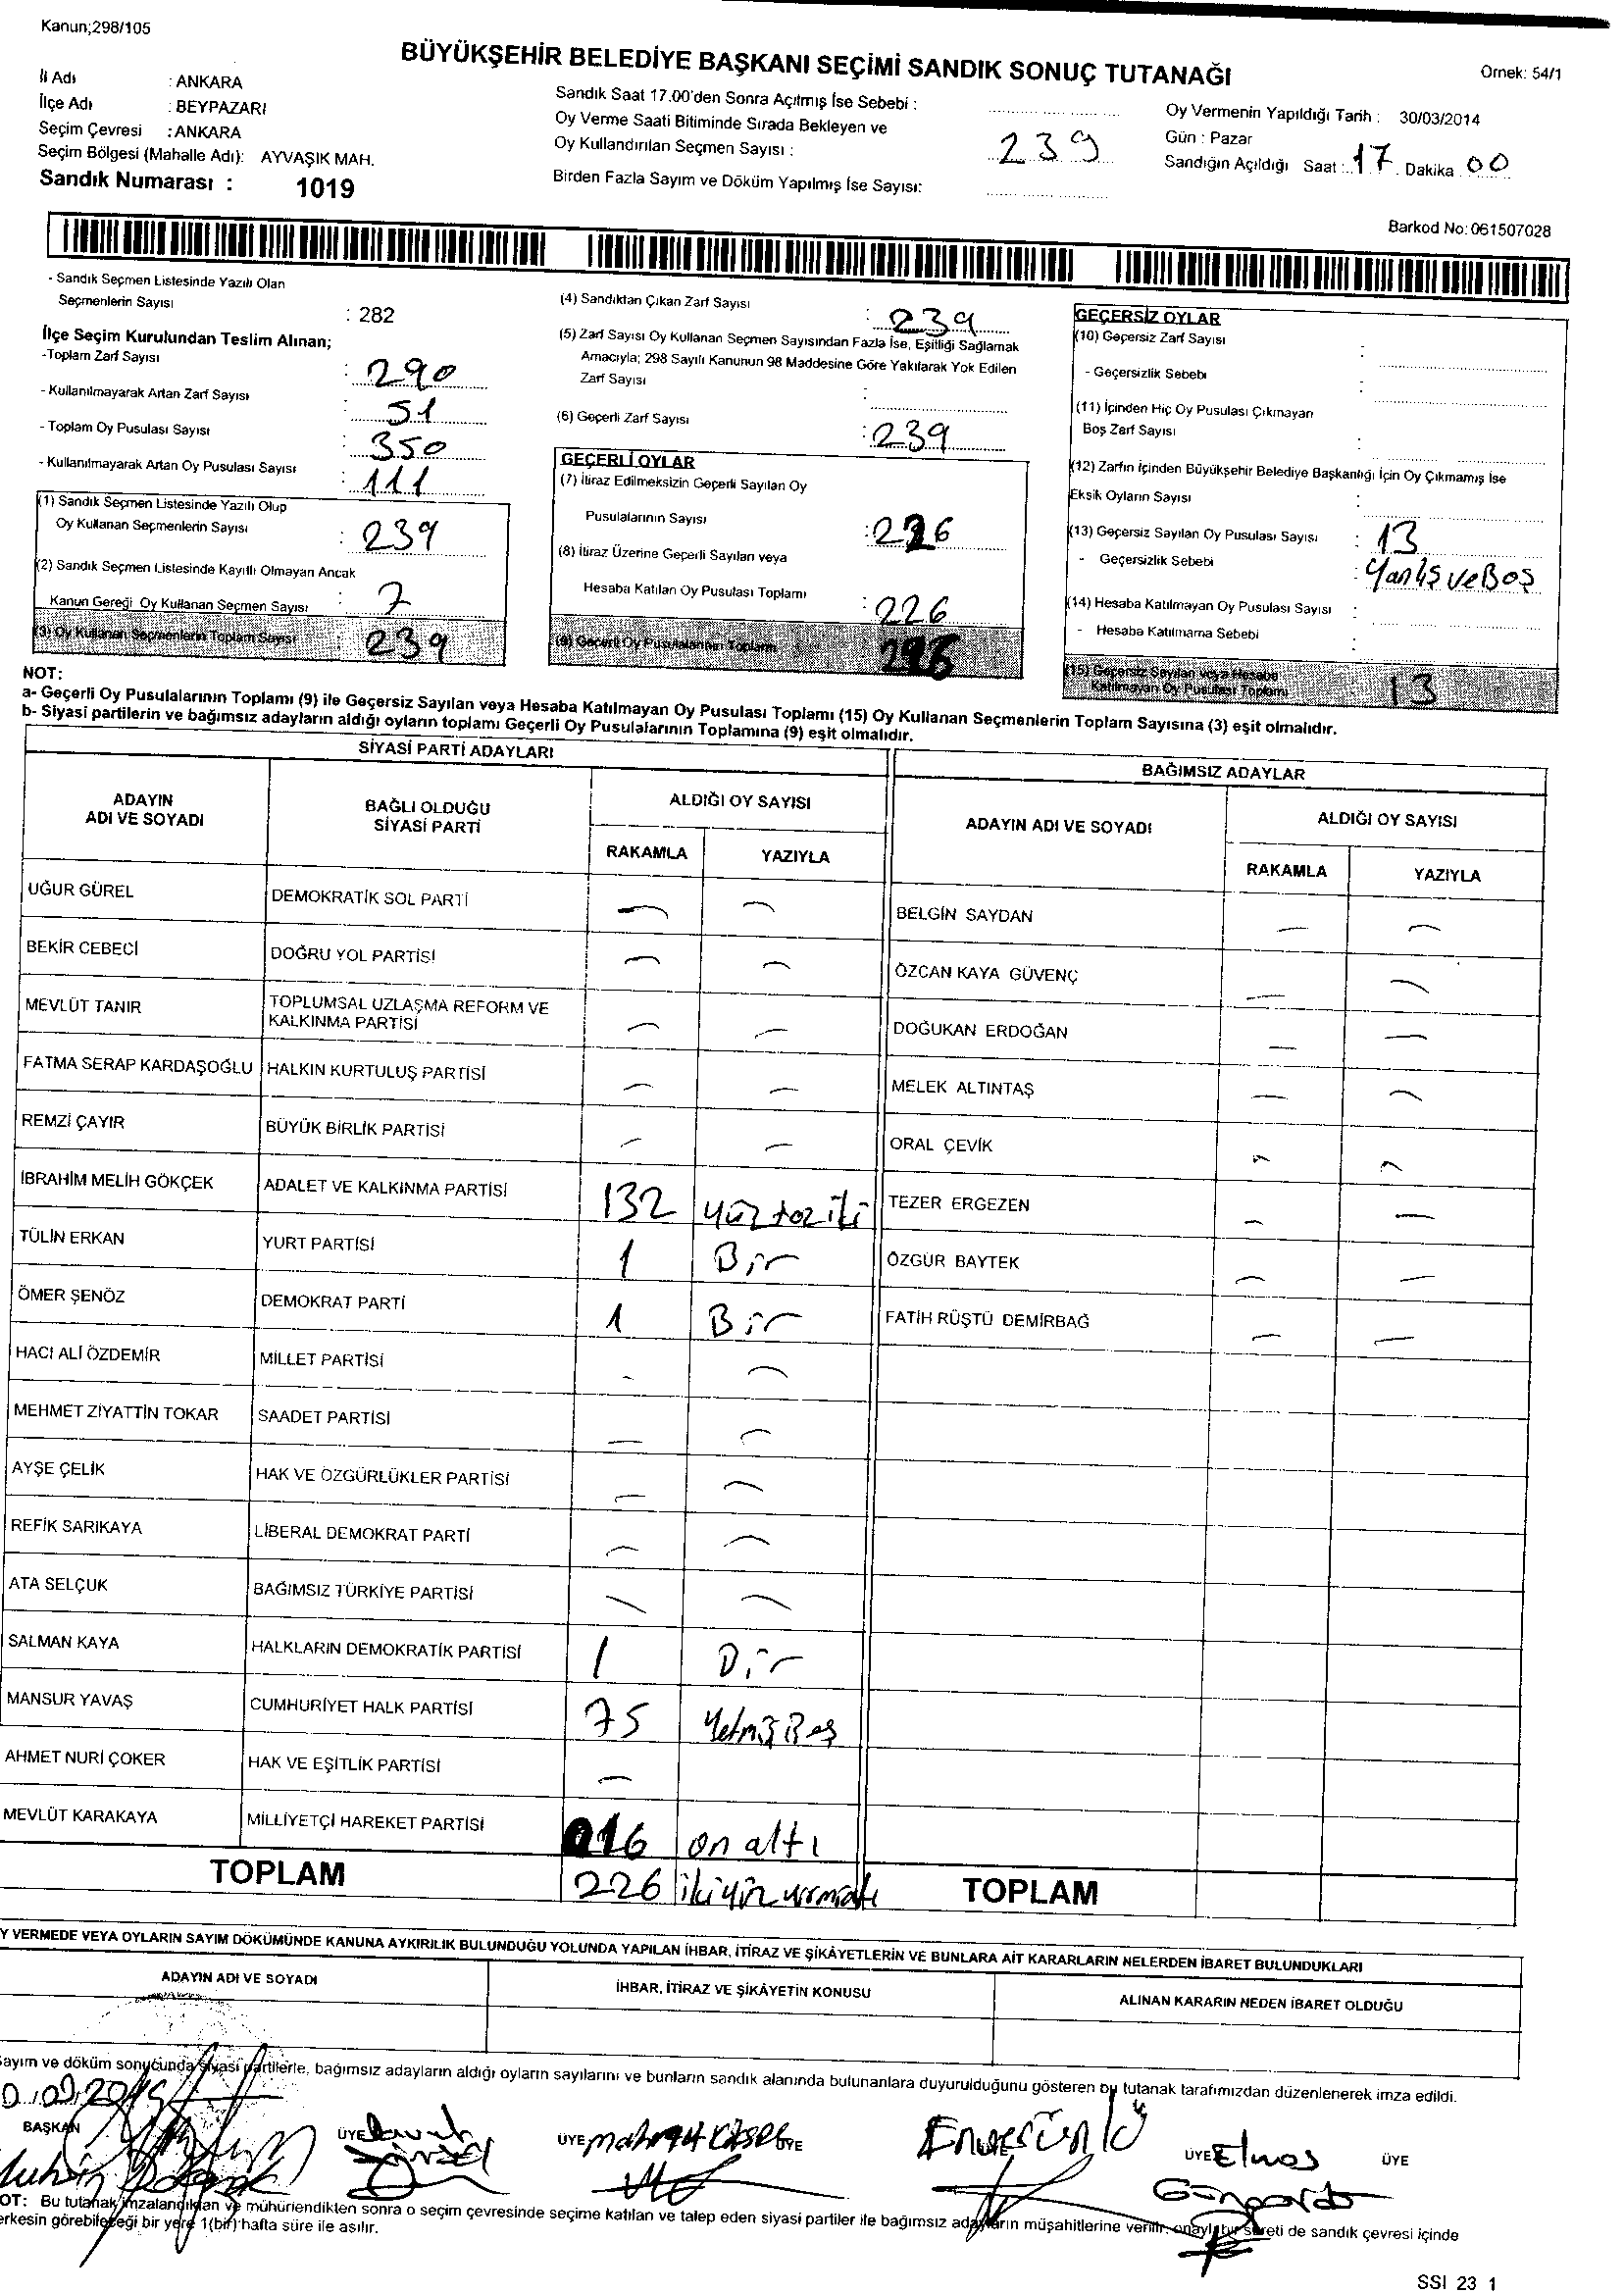 Kanun;298/105
BÜYÜKŞEHİR BELEDİYE BAŞKANI SEÇİMİ SANDIK SONUÇ TUTANAĞI
Örnek: 54/1
İl Adı : ANKARA
İlçe Adı : BEYPAZARI
Seçim Çevresi : ANKARA
Seçim Bölgesi (Mahalle Adı): AYVAŞIK MAH.
Sandık Numarası : 1019
Sandık Saat 17.00'den Sonra Açıtmış İse Sebebi :
Oy Verme Saati Bitiminde Sırada Bekleyen ve
Oy Kullandırılan Seçmen Sayısı : 239
Birden Fazla Sayım ve Döküm Yapılmış İse Sayısı:
Oy Vermenin Yapıldığı Tarih : 30/03/2014
Gün : Pazar
Sandığın Açıldığı Saat : 17 Dakika 00
Barkod No: 061507028
- Sandık Seçmen Listesinde Yazılı Olan
Seçmenlerin Sayısı : 282
İlçe Seçim Kurulundan Teslim Alınan;
-Toplam Zarf Sayısı : 290
- Kullanılmayarak Artan Zarf Sayısı : 51
- Toplam Oy Pusulası Sayısı : 350
- Kullanılmayarak Artan Oy Pusulası Sayısı : 111
(1) Sandık Seçmen Listesinde Yazılı Olup
Oy Kullanan Seçmenlerin Sayısı : 239
(2) Sandık Seçmen Listesinde Kayıtlı Olmayan Ancak
Kanun Gereği Oy Kullanan Seçmen Sayısı : 7
(3) Oy Kullanan Seçmenlerin Toplam Sayısı : 239
(4) Sandıktan Çıkan Zarf Sayısı : 239
(5) Zarf Sayısı Oy Kullanan Seçmen Sayısından Fazla İse, Eşitliği Sağlamak
Amacıyla; 298 Sayılı Kanunun 98 Maddesine Göre Yakılarak Yok Edilen
Zarf Sayısı :
(6) Geçerli Zarf Sayısı : 239
GEÇERLİ OYLAR
(7) İtiraz Edilmeksizin Geçerli Sayılan Oy
Pusulalarının Sayısı : 226
(8) İtiraz Üzerine Geçerli Sayılan veya
Hesaba Katılan Oy Pusulası Toplamı : 226
(9) Geçerli Oy Pusulalarının Toplamı 226
GEÇERSİZ OYLAR
(10) Geçersiz Zarf Sayısı :
- Geçersizlik Sebebi :
(11) İçinden Hiç Oy Pusulası Çıkmayan
Boş Zarf Sayısı :
(12) Zarfın İçinden Büyükşehir Belediye Başkanlığı İçin Oy Çıkmamış İse
Eksik Oyların Sayısı :
(13) Geçersiz Sayılan Oy Pusulası Sayısı : 13
- Geçersizlik Sebebi : Yanlış ve Boş
(14) Hesaba Katılmayan Oy Pusulası Sayısı :
- Hesaba Katılmama Sebebi :
(15) Geçersiz Sayılan veya Hesaba
Katılmayan Oy Pusulası Toplamı : 13
NOT:
a- Geçerli Oy Pusulalarının Toplamı (9) ile Geçersiz Sayılan veya Hesaba Katılmayan Oy Pusulası Toplamı (15) Oy Kullanan Seçmenlerin Toplam Sayısına (3) eşit olmalıdır.
b- Siyasi partilerin ve bağımsız adayların aldığı oyların toplamı Geçerli Oy Pusulalarının Toplamına (9) eşit olmalıdır.
SİYASİ PARTİ ADAYLARI
BAĞIMSIZ ADAYLAR
ADAYIN ADI VE SOYADI
BAĞLI OLDUĞU SİYASİ PARTİ
ALDIĞI OY SAYISI
RAKAMLA YAZIYLA
ADAYIN ADI VE SOYADI
ALDIĞI OY SAYISI
RAKAMLA YAZIYLA
UĞUR GÜREL DEMOKRATİK SOL PARTİ — — BELGİN SAYDAN — —
BEKİR CEBECİ DOĞRU YOL PARTİSİ — — ÖZCAN KAYA GÜVENÇ — —
MEVLÜT TANIR TOPLUMSAL UZLAŞMA REFORM VE KALKINMA PARTİSİ — — DOĞUKAN ERDOĞAN — —
FATMA SERAP KARDAŞOĞLU HALKIN KURTULUŞ PARTİSİ — — MELEK ALTINTAŞ — —
REMZİ ÇAYIR BÜYÜK BİRLİK PARTİSİ — — ORAL ÇEVİK — —
İBRAHİM MELİH GÖKÇEK ADALET VE KALKINMA PARTİSİ 132 TEZER ERGEZEN — —
TÜLİN ERKAN YURT PARTİSİ 1 Bir ÖZGÜR BAYTEK — —
ÖMER ŞENÖZ DEMOKRAT PARTİ 1 Bir FATİH RÜŞTÜ DEMİRBAĞ — —
HACI ALİ ÖZDEMİR MİLLET PARTİSİ — —
MEHMET ZİYATTİN TOKAR SAADET PARTİSİ — —
AYŞE ÇELİK HAK VE ÖZGÜRLÜKLER PARTİSİ — —
REFİK SARIKAYA LİBERAL DEMOKRAT PARTİ — —
ATA SELÇUK BAĞIMSIZ TÜRKİYE PARTİSİ — —
SALMAN KAYA HALKLARIN DEMOKRATİK PARTİSİ 1 Bir
MANSUR YAVAŞ CUMHURİYET HALK PARTİSİ 75 Yetmiş Beş
AHMET NURİ ÇOKER HAK VE EŞİTLİK PARTİSİ —
MEVLÜT KARAKAYA MİLLİYETÇİ HAREKET PARTİSİ 016 on altı
TOPLAM 226 TOPLAM
Y VERMEDE VEYA OYLARIN SAYIM DÖKÜMÜNDE KANUNA AYKIRILIK BULUNDUĞU YOLUNDA YAPILAN İHBAR, İTİRAZ VE ŞİKÂYETLERİN VE BUNLARA AİT KARARLARIN NELERDEN İBARET BULUNDUKLARI
ADAYIN ADI VE SOYADI İHBAR, İTİRAZ VE ŞİKÂYETİN KONUSU ALINAN KARARIN NEDEN İBARET OLDUĞU
ayım ve döküm sonucunda siyasi partilerle, bağımsız adayların aldığı oyların sayılarını ve bunların sandık alanında bulunanlara duyurulduğunu gösteren bu tutanak tarafımızdan düzenlenerek imza edildi.
BAŞKAN ÜYE ÜYE ÜYE ÜYE Elmas ÜYE
OT: Bu tutanak imzalandıktan ve mühürlendikten sonra o seçim çevresinde seçime katılan ve talep eden siyasi partiler ile bağımsız adayların müşahitlerine verilir, onaylı bir sureti de sandık çevresi içinde
erkesin görebileceği bir yere 1(bir) hafta süre ile asılır.
SSI 23 1